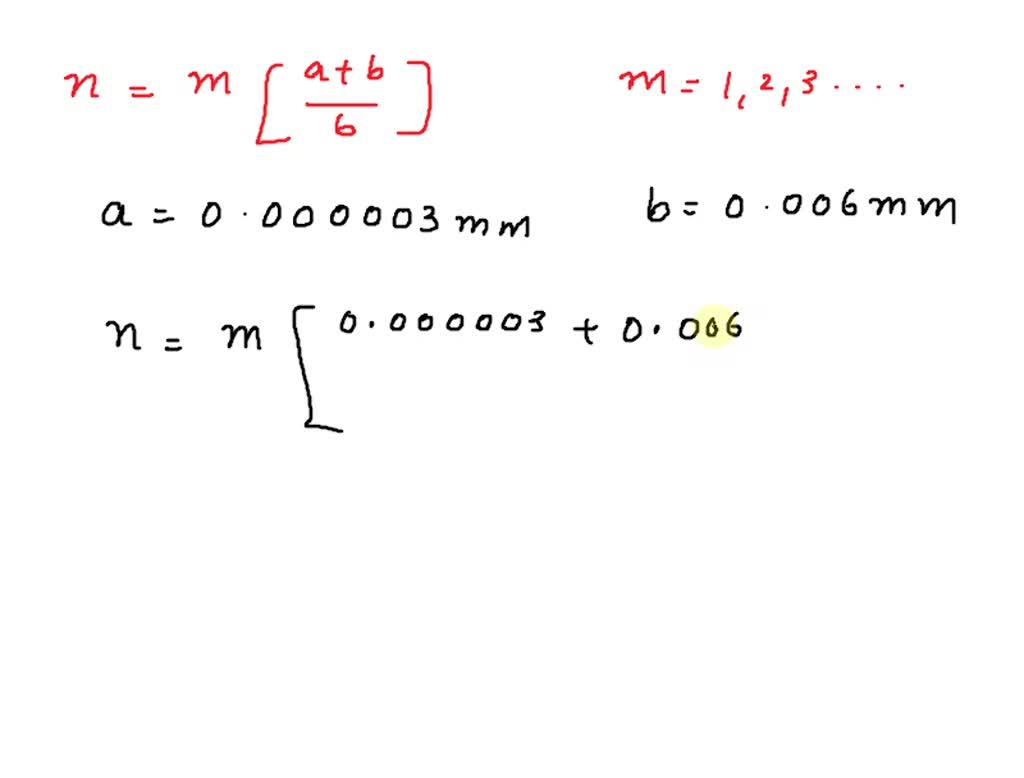 n = m [ a + b / b ] m = 1, 2, 3 ....
a = 0.000003 mm b = 0.006 mm
n = m [ 0.000003 + 0.006